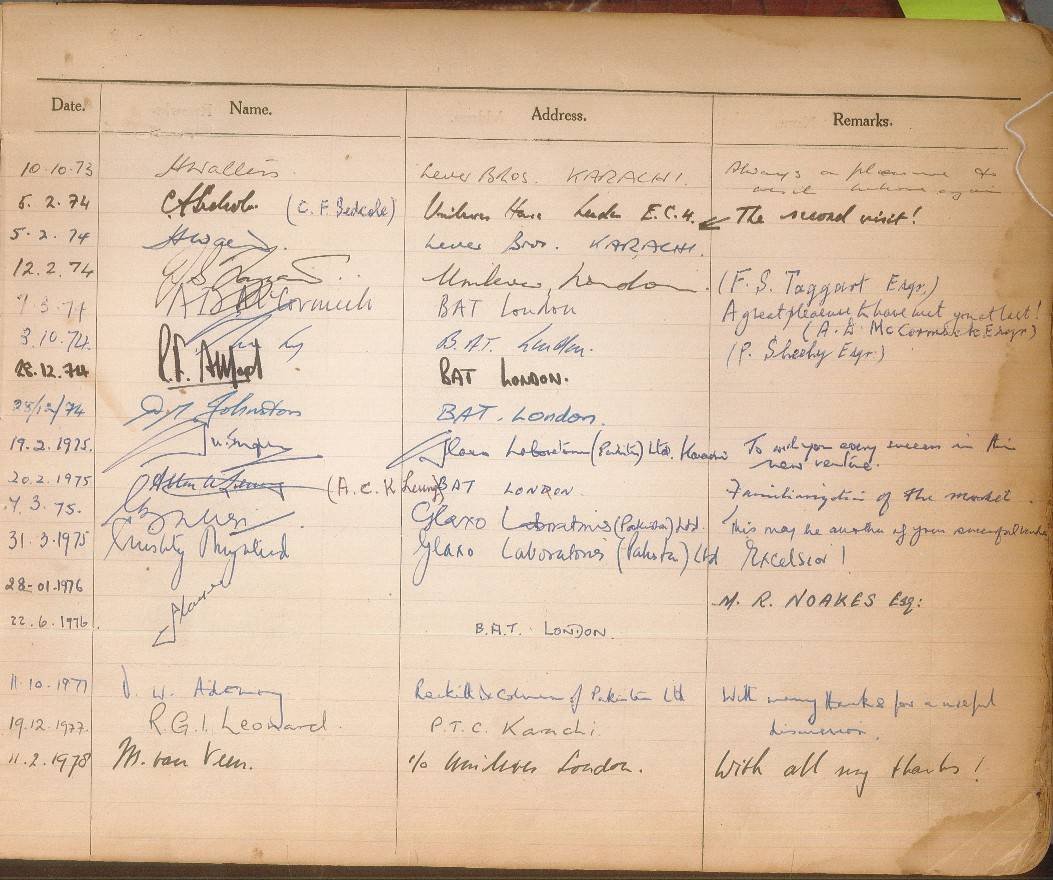 Date. Name. Address. Remarks.
10.10.73 Lever Bros. KARACHI. Always a pleasure to
again
5.2.74 (C. F. Sedcole) Unilever House London E.C.4. The second visit!
5.2.74 Lever Bros. KARACHI.
12.2.74 Unilever, London. (F. S. Taggart Esqr.)
3.74 McCormick BAT London A great pleasure to have met you at last!
(A. D. McCormick Esqr)
3.10.74 B.A.T. London. (P. Sheehy Esqr.)
28.12.74 BAT LONDON.
28/12/74 Johnston BAT. London.
19.2.1975. Glaxo Laboratories (Pakistan) Ltd. Karachi To wish you every success in this
new venture.
20.2.1975 (A. C. K Leung) BAT LONDON Familiarization of the market.
3.75. Glaxo Laboratories (Pakistan) Ltd. This may be another of your successful
31.3.1975 Glaxo Laboratories (Pakistan) Ltd Excelsior!
28-01.1976 M. R. NOAKES Esq:
22.6.1976. B.A.T. LONDON.
11.10.1977 Reckitt & Colman of Pakistan Ltd With many thanks for a useful
discussion.
19.12.1977. R.G.I. Leonard. P.T.C. Karachi.
11.2.1978 M. van Veen. c/o Unilever London. With all my thanks!